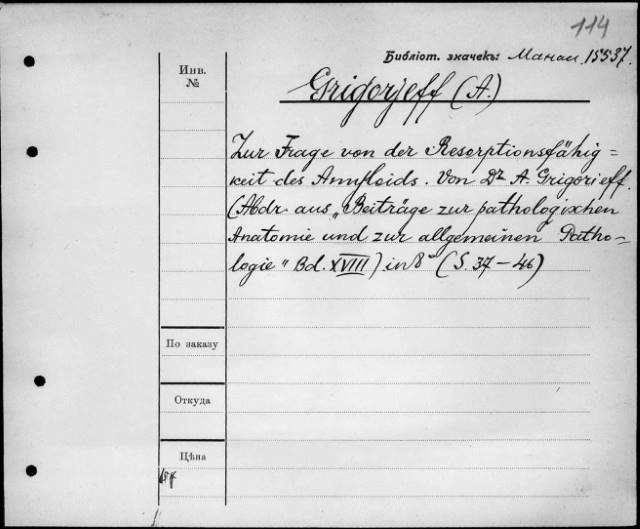 114
Библіот. значекъ: Манас. 15537.
Инв. №
Grigorjeff (A.)
Zur Frage von der Resorptionsfähig=
keit des Amyloids. Von Dr A. Grigorieff.
(Abdr. aus „Beiträge zur pathologischen
Anatomie und zur allgemeinen Patho-
logie" Bd. XVIII) in 8° (S. 37-46)
По заказу
Откуда
Цѣна